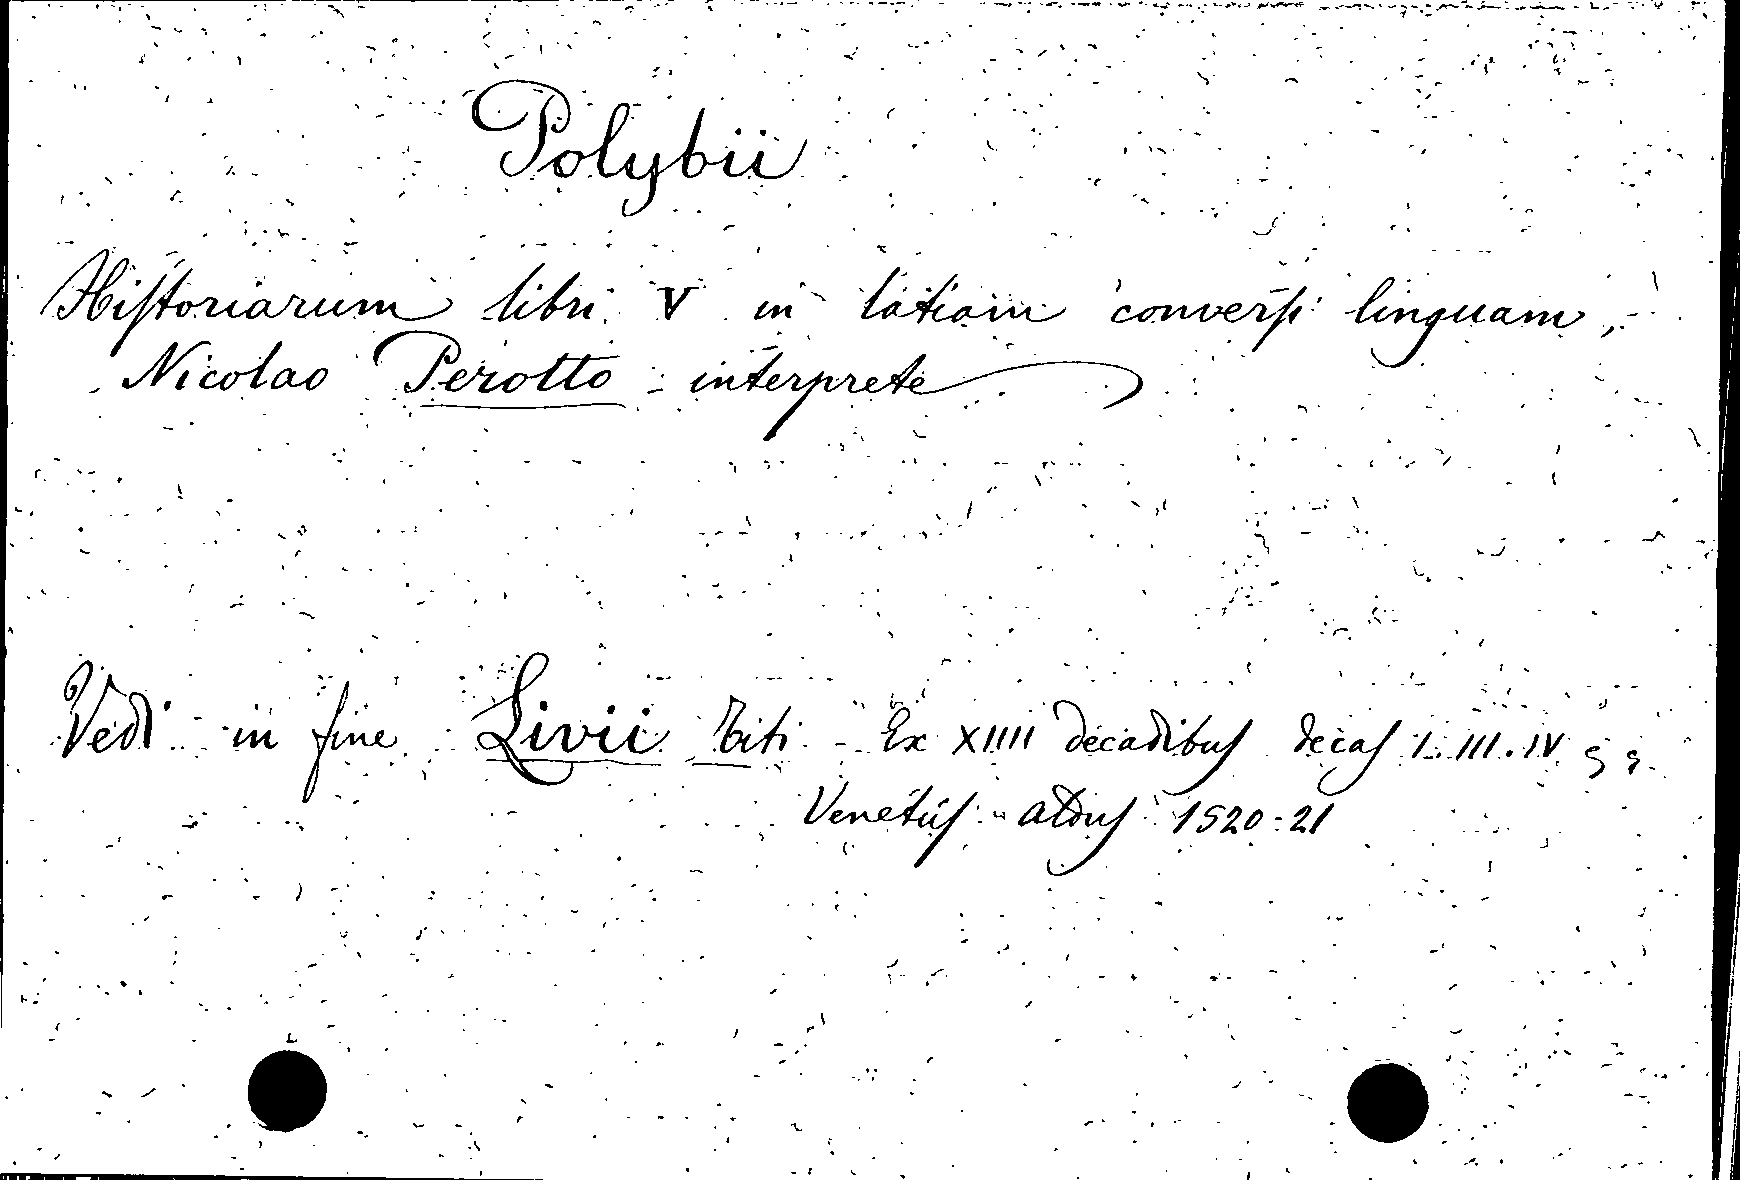 Polybii
Historiarum libri V in latiam conversi linguam,
Nicolao Perotto interprete
Vedi in fine Livii Titi - Ex XIIII decadibus decas I. III. IV
Venetiis - Aldus 1520-21